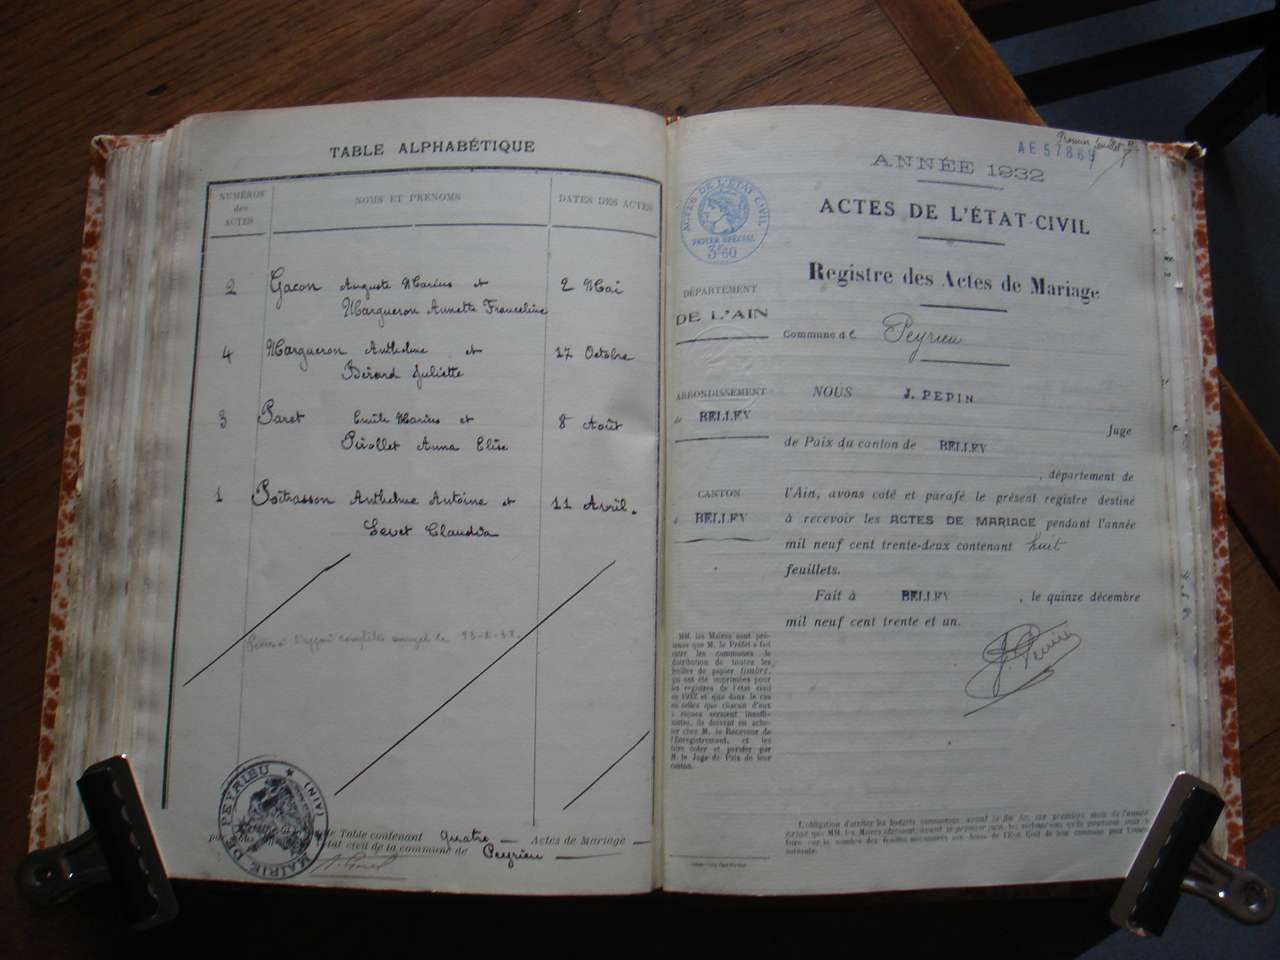 TABLE ALPHABÉTIQUE
NUMÉROS des ACTES
NOMS ET PRENOMS
DATES DES ACTES
2 Gacon Auguste Marius et 2 Mai
Margueron Annette Franceline
4 Margueron Anthelme et 17 Octobre
Bérard Juliette
3 Paret Emile Marius et 8 Août
Pivollet Anna Elise
1 Poitrasson Anthelme Antoine et 11 Avril.
Levet Claudia
MAIRIE DE PEYRIEU (AIN)
de Table contenant quatre Actes de Mariage
état civil de la commune de Peyrieu
AE 57869
ANNÉE 1932
ACTES DE L'ÉTAT CIVIL
ACTES DE L'ÉTAT CIVIL
PAPIER SPÉCIAL
3F60
Registre des Actes de Mariage
DÉPARTEMENT
DE L'AIN
Commune de Peyrieu
ARRONDISSEMENT
de BELLEY
NOUS J. PEPIN
Juge
de Paix du canton de BELLEY
, département de
CANTON
d BELLEY
l'Ain, avons coté et parafé le présent registre destiné
à recevoir les ACTES DE MARIAGE pendant l'année
mil neuf cent trente-deux contenant huit
feuillets.
Fait à BELLEY, le quinze décembre
mil neuf cent trente et un.
MM. les Maires sont pré-
venus que M. le Préfet a fait
entre les communes la
distribution de toutes les
feuilles de papier timbre,
qui ont été imprimées pour
les registres de l'état civil
de 1932 et que dans le cas
où celles que chacun d'eux
a reçues seraient insuffi-
santes, ils devront en ache-
ter chez M. le Receveur de
l'Enregistrement, et les
faire coter et parafer par
M. le Juge de Paix de leur
canton.